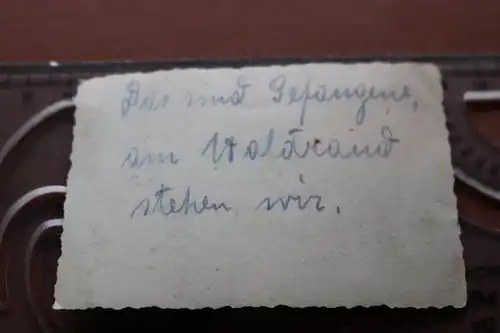 Das sind Gefangene,
am Waldrand
stehen wir.